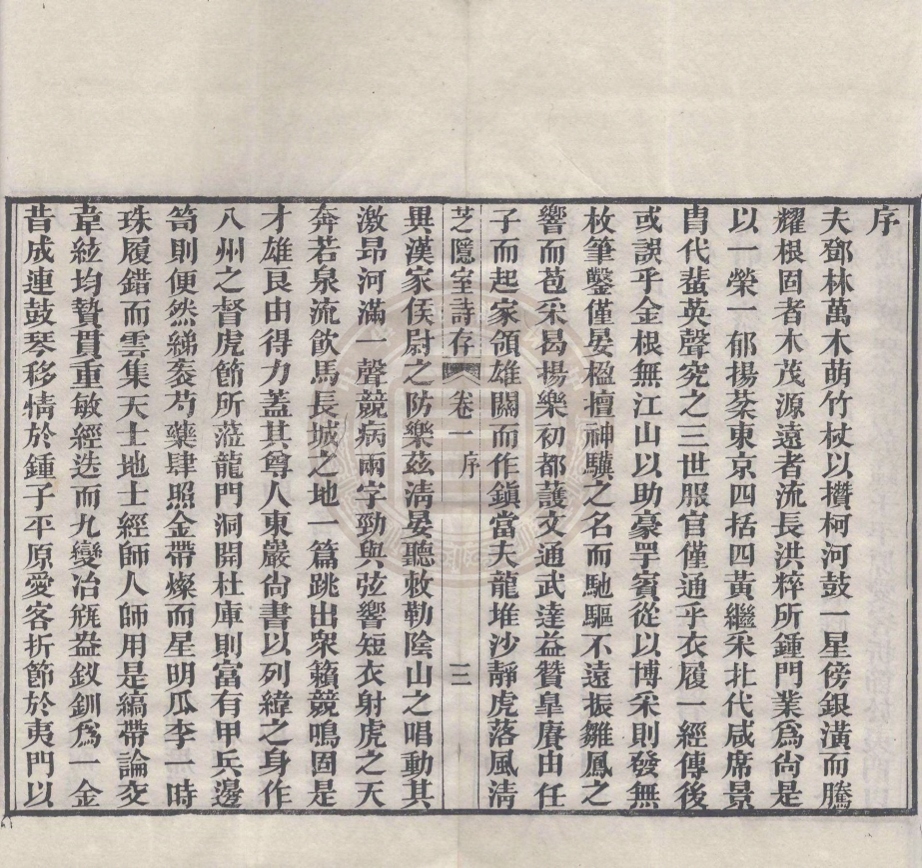 序
夫鄧林萬木萌竹杖以攢柯河鼓一星傍銀潢而騰
耀根固者木茂源遠者流長洪粹所鍾門業爲尚是
以一榮一郁揚棻東京四括四黃繼采北代咸席景
胄代蜚英聲究之三世服官僅通乎衣履一經傳後
或誤乎金根無江山以助豪罕賓從以博采則發無
枚筆鑿僅晏楹擅神驥之名而馳驅不遠振雛鳳之
響而苞采曷揚樂初都護文通武達益贊皇賡由任
子而起家領雄關而作鎮當夫龍堆沙靜虎落風清
芝隱室詩存 卷一 序 三
異漢家侯尉之防樂茲清晏聽敕勒陰山之唱動其
激昂河滿一聲競病兩字勁與弦響短衣射虎之天
奔若泉流飲馬長城之地一篇跳出衆籟競鳴固是
才雄良由得力蓋其尊人東巖尚書以列緯之身作
八州之督虎節所蒞龍門洞開杜庫則富有甲兵邊
笥則便然綈袠芍藥肆照金帶燦而星明瓜李一時
珠履錯而雲集天士地士經師人師用是縞帶論交
韋紘均贄貫重敏經迭而九變冶瓶盎釵釧爲一金
昔成連鼓琴移情於鍾子平原愛客折節於夷門以